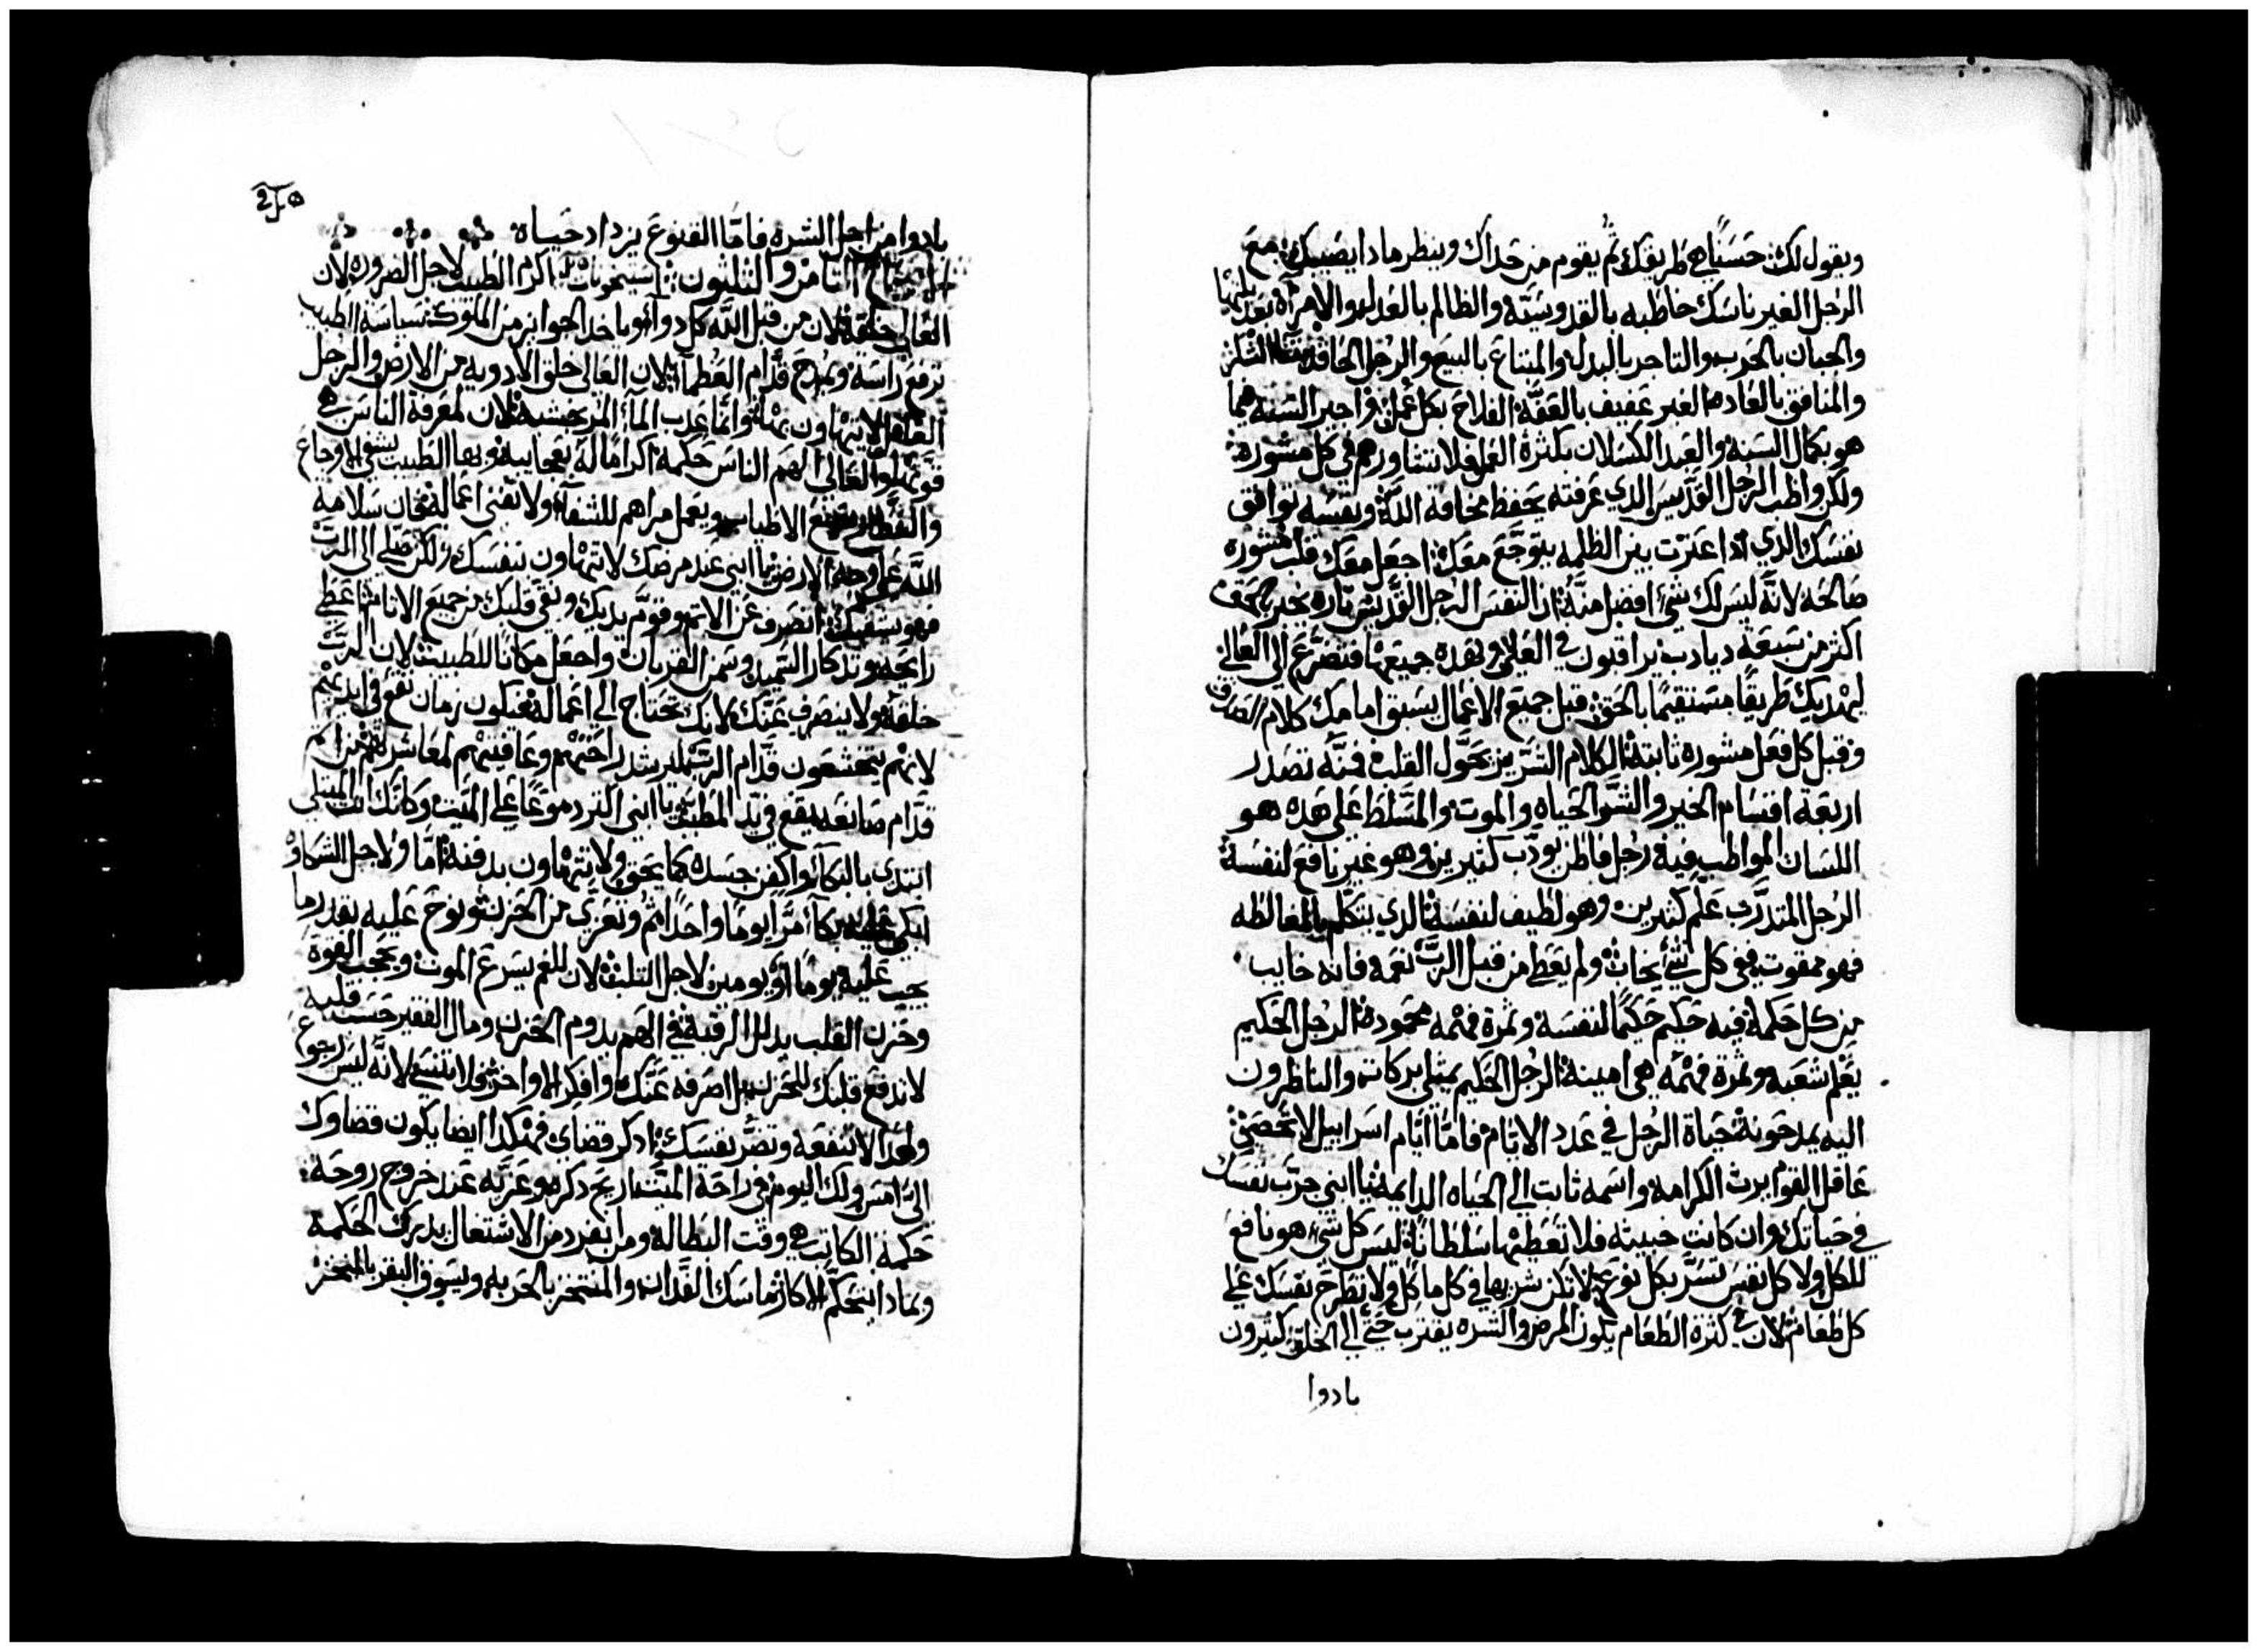 ويقول لك حسنًا هي طريقك ثم يقوم من حداك وينظر ما دا يصيبك مع
الرجل الغير ناسك خاطبه بالقدوسيه والظالم بالعدل والامراه بعد بلتها
والجبان بالحرب والتاجر بالبدل والمبتاع بالبيع والرجل الحاقد الشكر
والمنافق بالعاده الغير عفيف بالعفه الفلاح بكل عمل واجير السنه هما
هو بكمال السنه والعبد الكسلان بكثرة العمل فلا تشاورهم في كل مشوره
ولكن واظب الرجل القديس الدي عرفته يحفظ مخافة الله ونفسه توافق
نفسك الدي ادا عترت بين الظلمه يتوجع معك اجعل معك قلب مشوره
صالحه لانه ليس لك شي افضل منه ان النفس الرجل القديس تاره يخبر بالحق
اكثر من سبعه ديادب يراقبون في العلو وبهده جميعها فتضرع الي العالي
ليهديك طريقًا مستقيمًا بالحق قبل جميع الاعمال يسبق امامك كلام الصادق
وقبل كل فعل مشوره ثابته الكلام الشرير يحول القلب فمنه تصدر
اربعة اقسام الخير والشر الحياه والموت والمسلط علي هده هو
اللسان المواظب فيه رجل فاطن يودب كثيرين وهو غير نافع لنفسه
الرجل المتدرب علم كثيرين وهو لطيف لنفسه الدي يتكلم بالمغالطه
فهو ممقوت ففي كل شي يخاب ولم يعطي من قبل الرب نعمه فانه خايب
من كل حكمه فيه حكيم حكيمًا لنفسه وثمرة فهمه محموده الرجل الحكيم
يعلم شعبه وثمرة فهمه هي امينه الرجل الحكيم يمتلي بركات والناظرون
اليه يمدحونه حياة الرجل في عدد الايام فاما ايام اسراييل لا تحصي
عاقل القوم يرث الكرامه واسمه ثابت الي الحياه الدايمه يا ابني جرب نفسك
في حياتك وان كانت خبيثه فلا تعطيها سلطانًا ليس كل شي هو نافع
للكل ولا كل نفس تسر بكل نوع لا تكن شرهًا في كل ماكل ولا تطرح نفسك علي
كل طعام لان في كثرة الطعام يكون المرض والشره يقترب حتي الي الخلق كثيرون
بادوا
بادوا من اجل الشره فاما القنوع يزداد حياه
الاصحاح الثامن والثلثون استيخونات اكرم الطبيب لاجل الضروره لان
العالي خلقه لان من قبل الله كل دوا وياخد الجوايز من الملوك سياسة الطبيب
ترفع راسه ويمدح قدام العظما لان العالي خلق الادويه من الارض والرجل
العاقل لا يتهاون بها وانما عدب الما المر خشبه لان لمعرفة الناس هي
قوتها والعالي الهم الناس حكمه اكرامًا له بعجايبه وبها الطبيب يشفي الاوجاع
والعطار يصنع الاطياب ويعمل مراهم للشفا ولا تفني اعماله فان سلامة
الله علي وجه الارض يا ابني عند مرضك لا تتهاون بنفسك لكن صلي الي الرب
فهو يشفيك انصرف عن الاتم وقوم يديك ونقي قلبك من جميع الاثام اعطي
رايحه وتدكار السميد وسمن القربان واجعل مكانًا للطبيب لان الرب
خلقه ولا ينصرف عنك لانك تحتاج الي اعماله فيكون زمان تقع في ايديهم
لانهم يتخشعون قدام الرب ليرشد راحتهم وعافيتهم لمعاشرتهم من اثم
قدام صانعه يقع في يد المطبب يا ابني اكثر دموعًا علي الميت وكانك انت المبتلي
ابتدي بالبكا واكفن جسده كما يحق ولا تتهاون بدفنه اما ولاجل الشكاوه
ابكي عليه بكآ مرًا يومًا واحدًا ثم وتعزي من الحزن ونوح عليه بقدر ما
يجب عليه يومًا او يومين لاجل التلب لان للغم يسرع الموت ويحجب القوه
وحزن القلب يدلل الرقبه في الهم يدوم الحزن ومال الفقير حسب قلبه
لا تدفع قلبك للحزن بل اصرفه عنك وافكر الاواخر ولا تنسي لانه ليس رجوع
ولهدا لا تنفعه وتضر نفسك ادكر قضاي فهكدا ايضا يكون قضاوك
الي امس ولك اليوم في راحة الميت اريح دكره وعزيه عند خروج روحه
حكمة الكاتب في وقت البطاله ومن انفرد من الاشتغال يدرك الحكمه
وبمادا يتحكم الاكار ماسك الفدان والمفتخر بالحربه ويسوق البقر بالمنخز